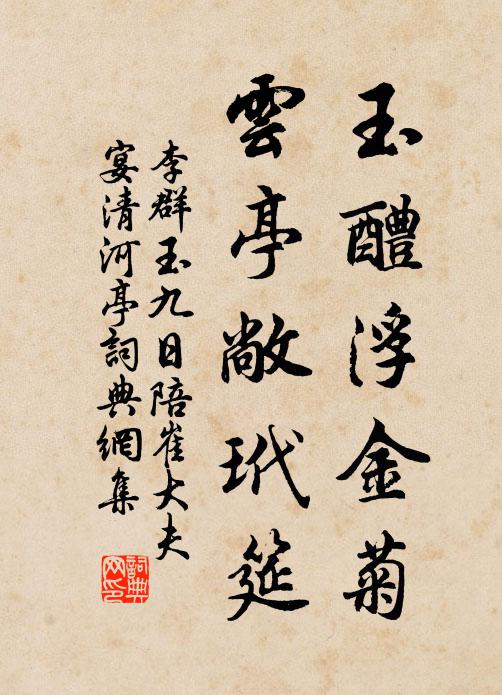 玉醴浮金菊
雲亭敞玳筵
李群玉九日陪崔大夫
宴清河亭詞典網集
詞典
网印